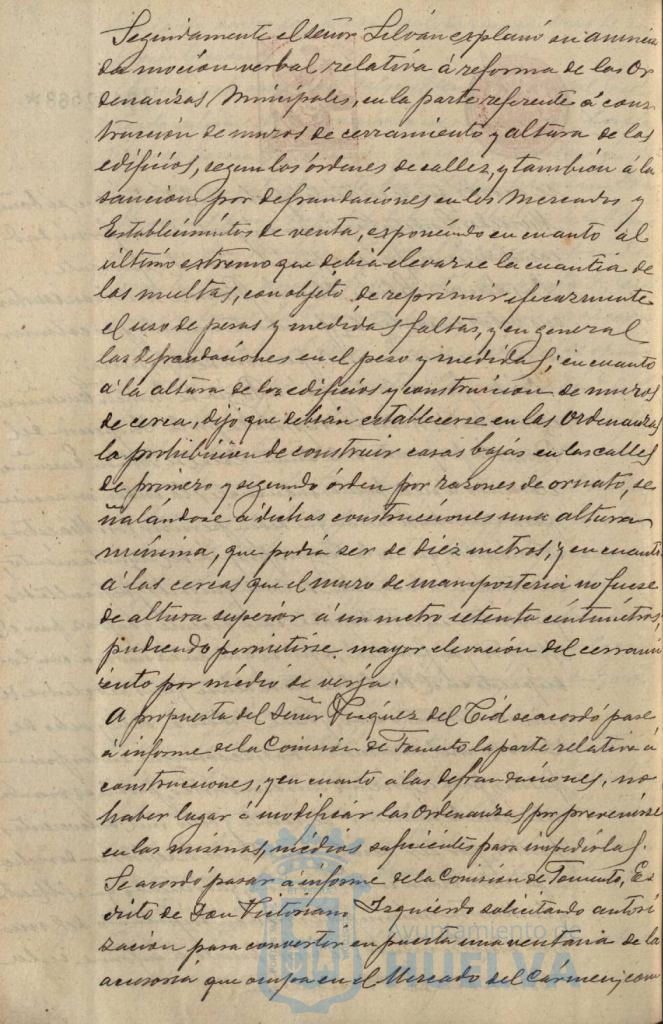 Seguidamente el señor Silván explanó su anuncia
da moción verbal relativa á reforma de las Or
denanzas Municipales, en la parte referente á cons
trucción de muros de cerramiento y altura de los
edificios, segun los órdenes de calles, y también á la
sanción por defraudaciones en los Mercados y
Establecimientos de venta, exponiendo en cuanto al
último extremo que debia elevarse la cuantia de
las multas, con objeto de reprimir eficazmente
el uso de pesas y medidas faltas, y en general
las defraudaciones en el peso y medidas; en cuanto
á la altura de los edificios y construcción de muros
de cerca, dijo que debian establecerse en las Ordenanzas
la prohibición de construir casas bajas en las calles
de primero y segundo órden por razones de ornato, se
ñalándose á dichas construcciones una altura
mínima, que podia ser de diez metros; y en cuanto
á las cercas que el muro de mamposteria no fuese
de altura superior á un metro setenta centimetros,
pudiendo permitirse mayor elevación del cerrami
ento por médio de verja.
A propuesta del Señor Vazquez del Cid se acordó pase
á informe de la Comisión de Fomento la parte relativa á
construcciones, y en cuanto á las defraudaciones, no
haber lugar á modificar las Ordenanzas por prevenirse
en las mismas, médios suficientes para impedirlas.
Se acordó pasar á informe de la Comisión de Fomento, Es
crito de Don Victoriano Izquierdo solicitando autori
zación para convertir en puerta una ventana de la
accesoria que ocupa en el Mercado del Cármen; com
Ayuntamiento de
HUELVA